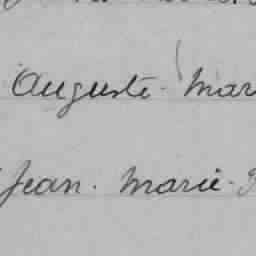 Auguste. Mar
Jean. Marie.